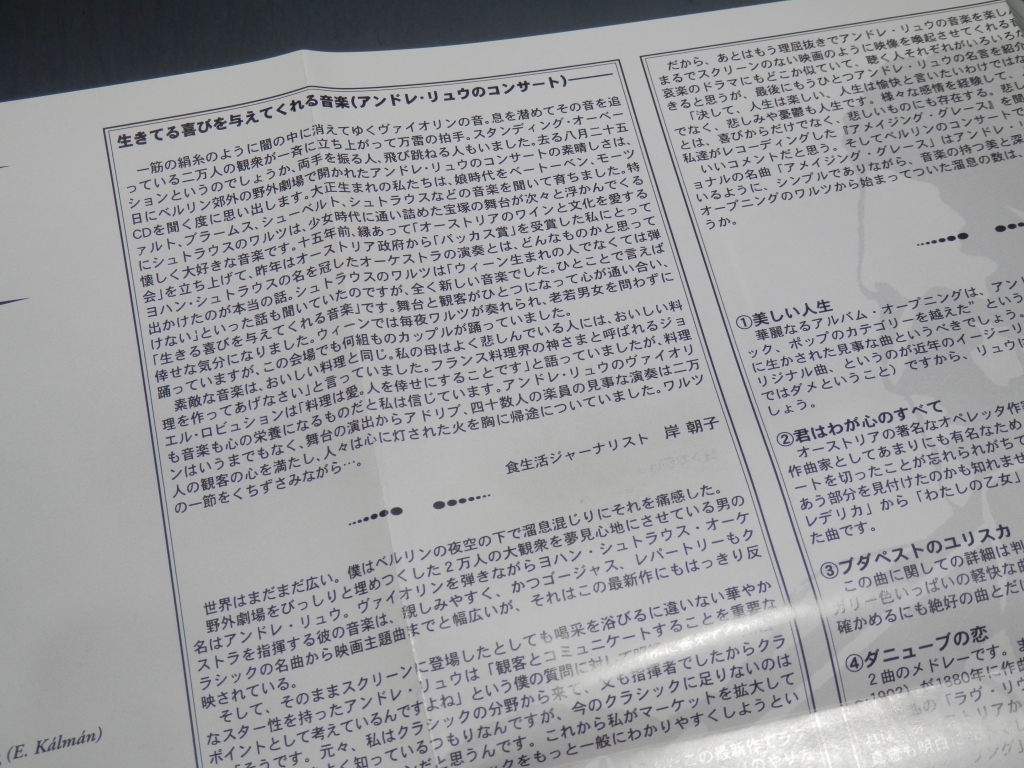 生きてる喜びを与えてくれる音楽(アンドレ・リュウのコンサート)
一筋の絹糸のように闇の中に消えてゆくヴァイオリンの音。息を潜めてその音を追
っている二万人の観衆が一斉に立ち上がって万雷の拍手。スタンディング・オーベー
ションというのでしょうか、両手を振る人、飛び跳ねる人もいました。去る八月二十五
日にベルリン郊外の野外劇場で開かれたアンドレ・リュウのコンサートの素晴しさは、
CDを聞く度に思い出します。大正生まれの私たちは、娘時代をベートーベン、モーツ
ァルト、ブラームス、シューベルト、シュトラウスなどの音楽を聞いて育ちました。特
にシュトラウスのワルツは、少女時代に通い詰めた宝塚の舞台が次々と浮かんでくる
懐しく大好きな音楽です。十五年前、縁あって「オーストリアのワインと文化を愛する
会」を立ち上げて、昨年はオーストリア政府から「バッカス賞」を受賞した私にとって
ヨハン・シュトラウスの名を冠したオーケストラの演奏とは、どんなものかと思って
出かけたのが本当の話。シュトラウスのワルツは「ウィーン生まれの人でなくては弾
けない」といった話も聞いていたのですが、全く新しい音楽でした。ひとことで言えば
「生きる喜びを与えてくれる音楽」です。舞台と観客がひとつになって心が通い合い、
倖せな気分になりました。ウィーンでは毎夜ワルツが奏れられ、老若男女を問わずに
踊っていますが、この会場でも何組ものカップルが踊っていました。
素敵な音楽は、おいしい料理と同じ。私の母はよく悲しんでいる人には、おいしい料
理を作ってあげなさい」と言っていました。フランス料理界の神さまと呼ばれるジョ
エル・ロビュションは「料理は愛。人を倖せにすることです」と語っていましたが、料理
も音楽も心の栄養になるものだと私は信じています。アンドレ・リュウのヴァイオリ
ンはいうまでもなく、舞台の演出からアドリブ、四十数人の楽員の見事な演奏は二万
人の観客の心を満たし、人々は心に灯された火を胸に帰途についていました。ワルツ
の一節をくちずさみながら…。
食生活ジャーナリスト 岸 朝子
世界はまだまだ広い。僕はベルリンの夜空の下で溜息混じりにそれを痛感した。
野外劇場をびっしりと埋めつくした2万人の大観衆を夢見心地にさせている男の
名はアンドレ・リュウ。ヴァイオリンを弾きながらヨハン・シュトラウス・オーケ
ストラを指揮する彼の音楽は、親しみやすく、かつゴージャス、レパートリーもク
ラシックの名曲から映画主題曲までと幅広いが、それはこの最新作にもはっきり反
映されている。
そして、そのままスクリーンに登場したとしても喝采を浴びるに違いない華やか
なスター性を持ったアンドレ・リュウは「観客とコミュニケートすることを重要な
ポイントとして考えているんですよね」という僕の質問に対して
「そうです。元々、私はクラシックの分野から来て、父も指揮者でしたからクラ
よく知っているつもりなんですが、今のクラシックに足りないのは
だと思うんです。これから私がマーケットを拡大して
をもっと一般にわかりやすくしようとい
だから、あとはもう理屈抜きでアンドレ・リュウの音楽を楽し
まるでスクリーンのない映画のように映像を喚起させてくれるもの
哀楽のドラマにもどこか似ていて、聴く人それぞれがいろいろ
きると思うが、最後にもうひとつアンドレ・リュウの名言を紹介
「決して、人生は楽しい、人生は愉快と言いたいわけではな
でなく、悲しみや憂鬱も人生です。様々な感情を経験して、
とは、喜びからだけでなく、悲しいものにも存在する。悲し
私達がレコーディングした『アメイジング・グレース』を聞
いいコメントだと思う。そしてベルリンのコンサートで
ョナルの名曲「アメイジング・グレース」はアンドレ・
いるように、シンプルでありながら、音楽の持つ美と深
オープニングのワルツから始まってついた溜息の数は、
うか。
①美しい人生
華麗なるアルバム・オープニングは、アン
ック、ポップのカテゴリーを越えた" という
に生かされた見事な曲というべきでしょう。
リジナル曲、というのが近年のイージーリ
ではダメということ)ですから、リュウに
しょう。
②君はわが心のすべて
オーストリアの著名なオペレッタ作
作曲家としてあまりにも有名なため
ートを切ったことが忘れられがちで
あう部分を見付けたのかも知れませ
レデリカ」から「わたしの乙女」
た曲です。
③ブダペストのコリスカ
この曲に関しての詳細は判
ガリー色いっぱいの軽快な曲
確かめるにも絶好の曲とだい
④ダニューブの恋
2曲のメドレーです。ま
が1880年に作曲
の「ラヴ・リ
(E. Kálmán)